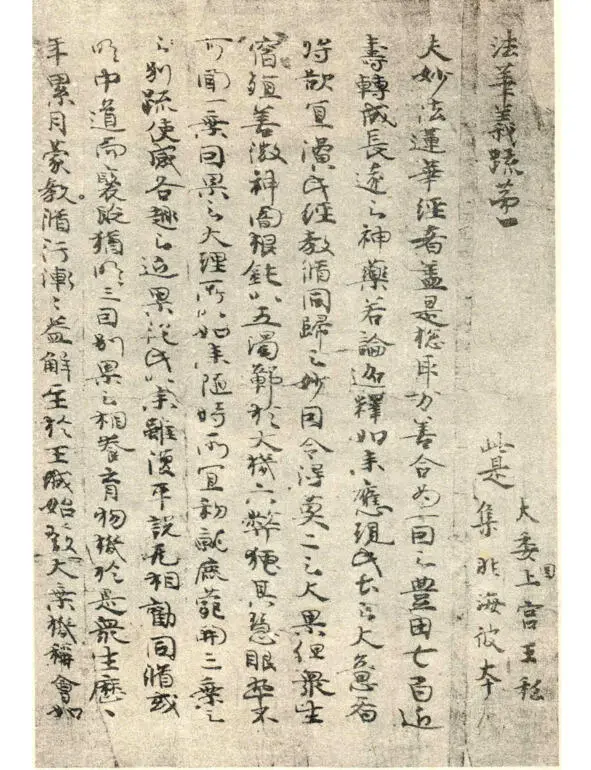 法華義疏第一
此是
大委国上宮王私
集非海彼本
夫妙法蓮華經者盖是惣取万善合為一因之豊田七百近
壽轉成長遠之神藥若論迦釋如来應現此土之大意者
将欲宜演此經教脩同歸之妙因令得莫二之大果但衆生
宿殖善微神闇根鈍以五濁鄣於大機六弊掩其慧眼卒不
可聞一乗因果之大理所以如来随時所宜初就鹿苑開三乗之
之別疏使感各趣之近果従此以来雖復平説无相勸同脩或
明中道而褒貶猶明三因別果之相養育物機於是衆生歷〻
年累月蒙教脩行漸〻益解至於王城始發大乗機稱會如